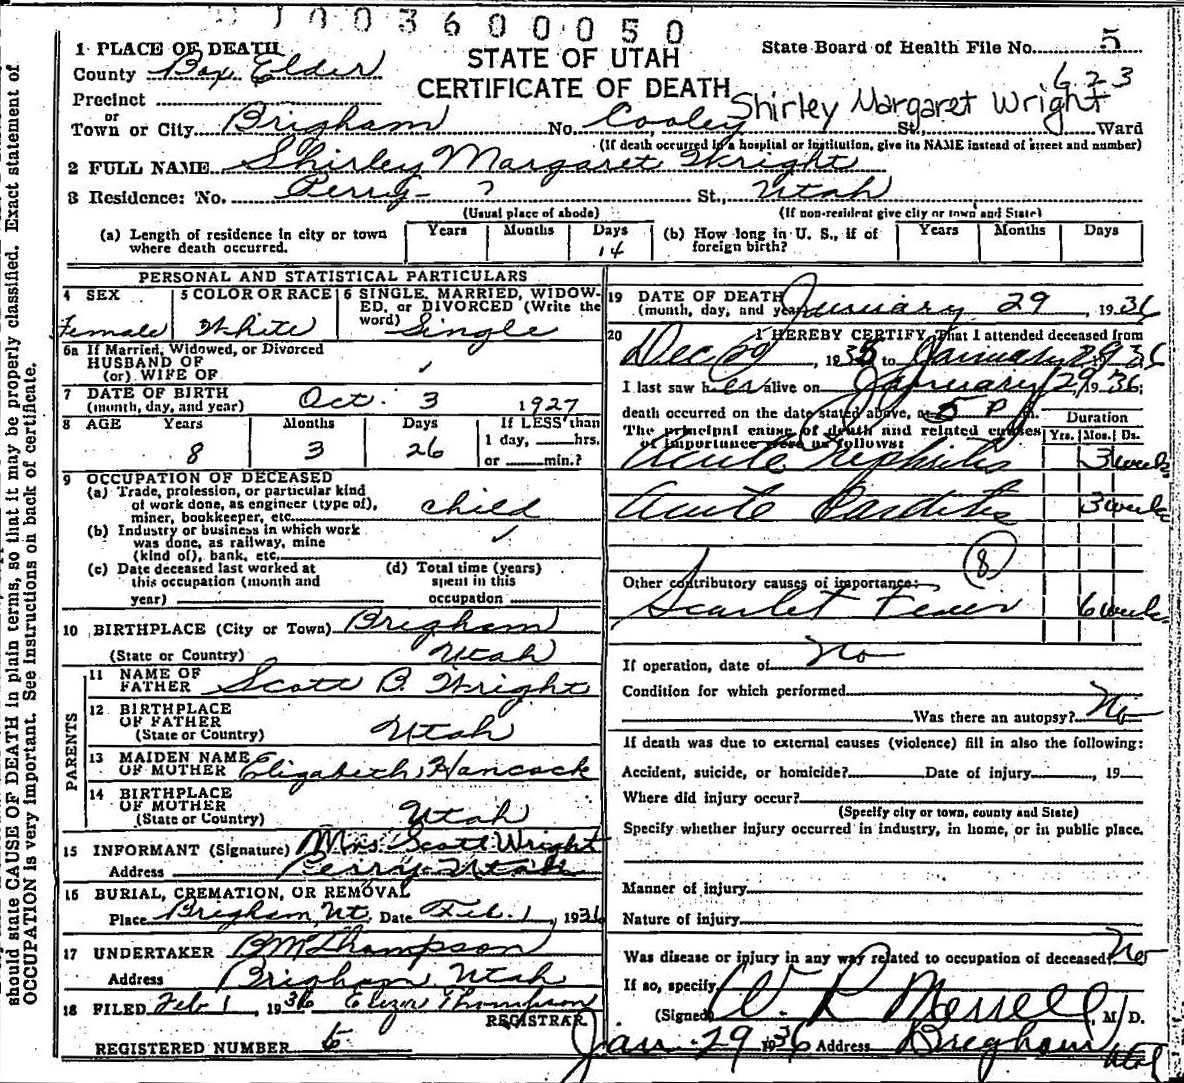 1003600050
1 PLACE OF DEATH
STATE OF UTAH
CERTIFICATE OF DEATH
State Board of Health File No. 5
623
County Box Elder
Precinct
or
Town or City Brigham No. Cooley St., Ward
Shirley Margaret Wright
(If death occurred in a hospital or institution, give its NAME instead of street and number)
2 FULL NAME Shirley Margaret Wright
3 Residence: No. Perry - ? St., Utah
(Usual place of abode) (If non-resident give city or town and State)
(a) Length of residence in city or town where death occurred. Years Months Days 14
(b) How long in U. S., if of foreign birth? Years Months Days
PERSONAL AND STATISTICAL PARTICULARS
4 SEX Female
5 COLOR OR RACE White
6 SINGLE, MARRIED, WIDOWED, or DIVORCED (Write the word) Single
6a If Married, Widowed, or Divorced
HUSBAND OF
(or) WIFE OF
7 DATE OF BIRTH
(month, day, and year) Oct. 3 1927
8 AGE Years 8 Months 3 Days 26 If LESS than 1 day, hrs. or min.?
9 OCCUPATION OF DECEASED
(a) Trade, profession, or particular kind
of work done, as engineer (type of),
miner, bookkeeper, etc. child
(b) Industry or business in which work
was done, as railway, mine
(kind of), bank, etc.
(c) Date deceased last worked at
this occupation (month and
year)
(d) Total time (years)
spent in this
occupation
10 BIRTHPLACE (City or Town) Brigham
(State or Country) Utah
PARENTS
11 NAME OF
FATHER Scott B. Wright
12 BIRTHPLACE
OF FATHER
(State or Country) Utah
13 MAIDEN NAME
OF MOTHER Elizabeth Hancock
14 BIRTHPLACE
OF MOTHER
(State or Country) Utah
15 INFORMANT (Signature) Mrs. Scott Wright
Address Perry Utah
16 BURIAL, CREMATION, OR REMOVAL
Place Brigham, Ut. Date Feb. 1, 1936
17 UNDERTAKER B M Thompson
Address Brigham, Utah
18 FILED Feb 1, 1936 Thompson
REGISTRAR
REGISTERED NUMBER
19 DATE OF DEATH
(month, day, and year) January 29, 1936
20 I HEREBY CERTIFY, That I attended deceased from
Dec 29 1935 to January 29 36
I last saw her alive on January 29, 1936;
death occurred on the date stated above, at 5 P m.
The principal cause of death and related causes
of importance were as follows:
Duration
Yrs. Mos. Ds.
Acute Nephritis 3 weeks
Acute Carditis 3 weeks
8
Other contributory causes of importance:
Scarlet Fever 6 weeks
If operation, date of No
Condition for which performed
Was there an autopsy? No
If death was due to external causes (violence) fill in also the following:
Accident, suicide, or homicide? Date of injury , 19
Where did injury occur?
(Specify city or town, county and State)
Specify whether injury occurred in industry, in home, or in public place.
Manner of injury
Nature of injury
Was disease or injury in any way related to occupation of deceased? No
If so, specify
(Signed) W R Merrell, M. D.
Jan. 29 1936 Address Brigham Utah
should state CAUSE OF DEATH in plain terms, so that it may be properly classified. Exact statement of
OCCUPATION is very important. See instructions on back of certificate.